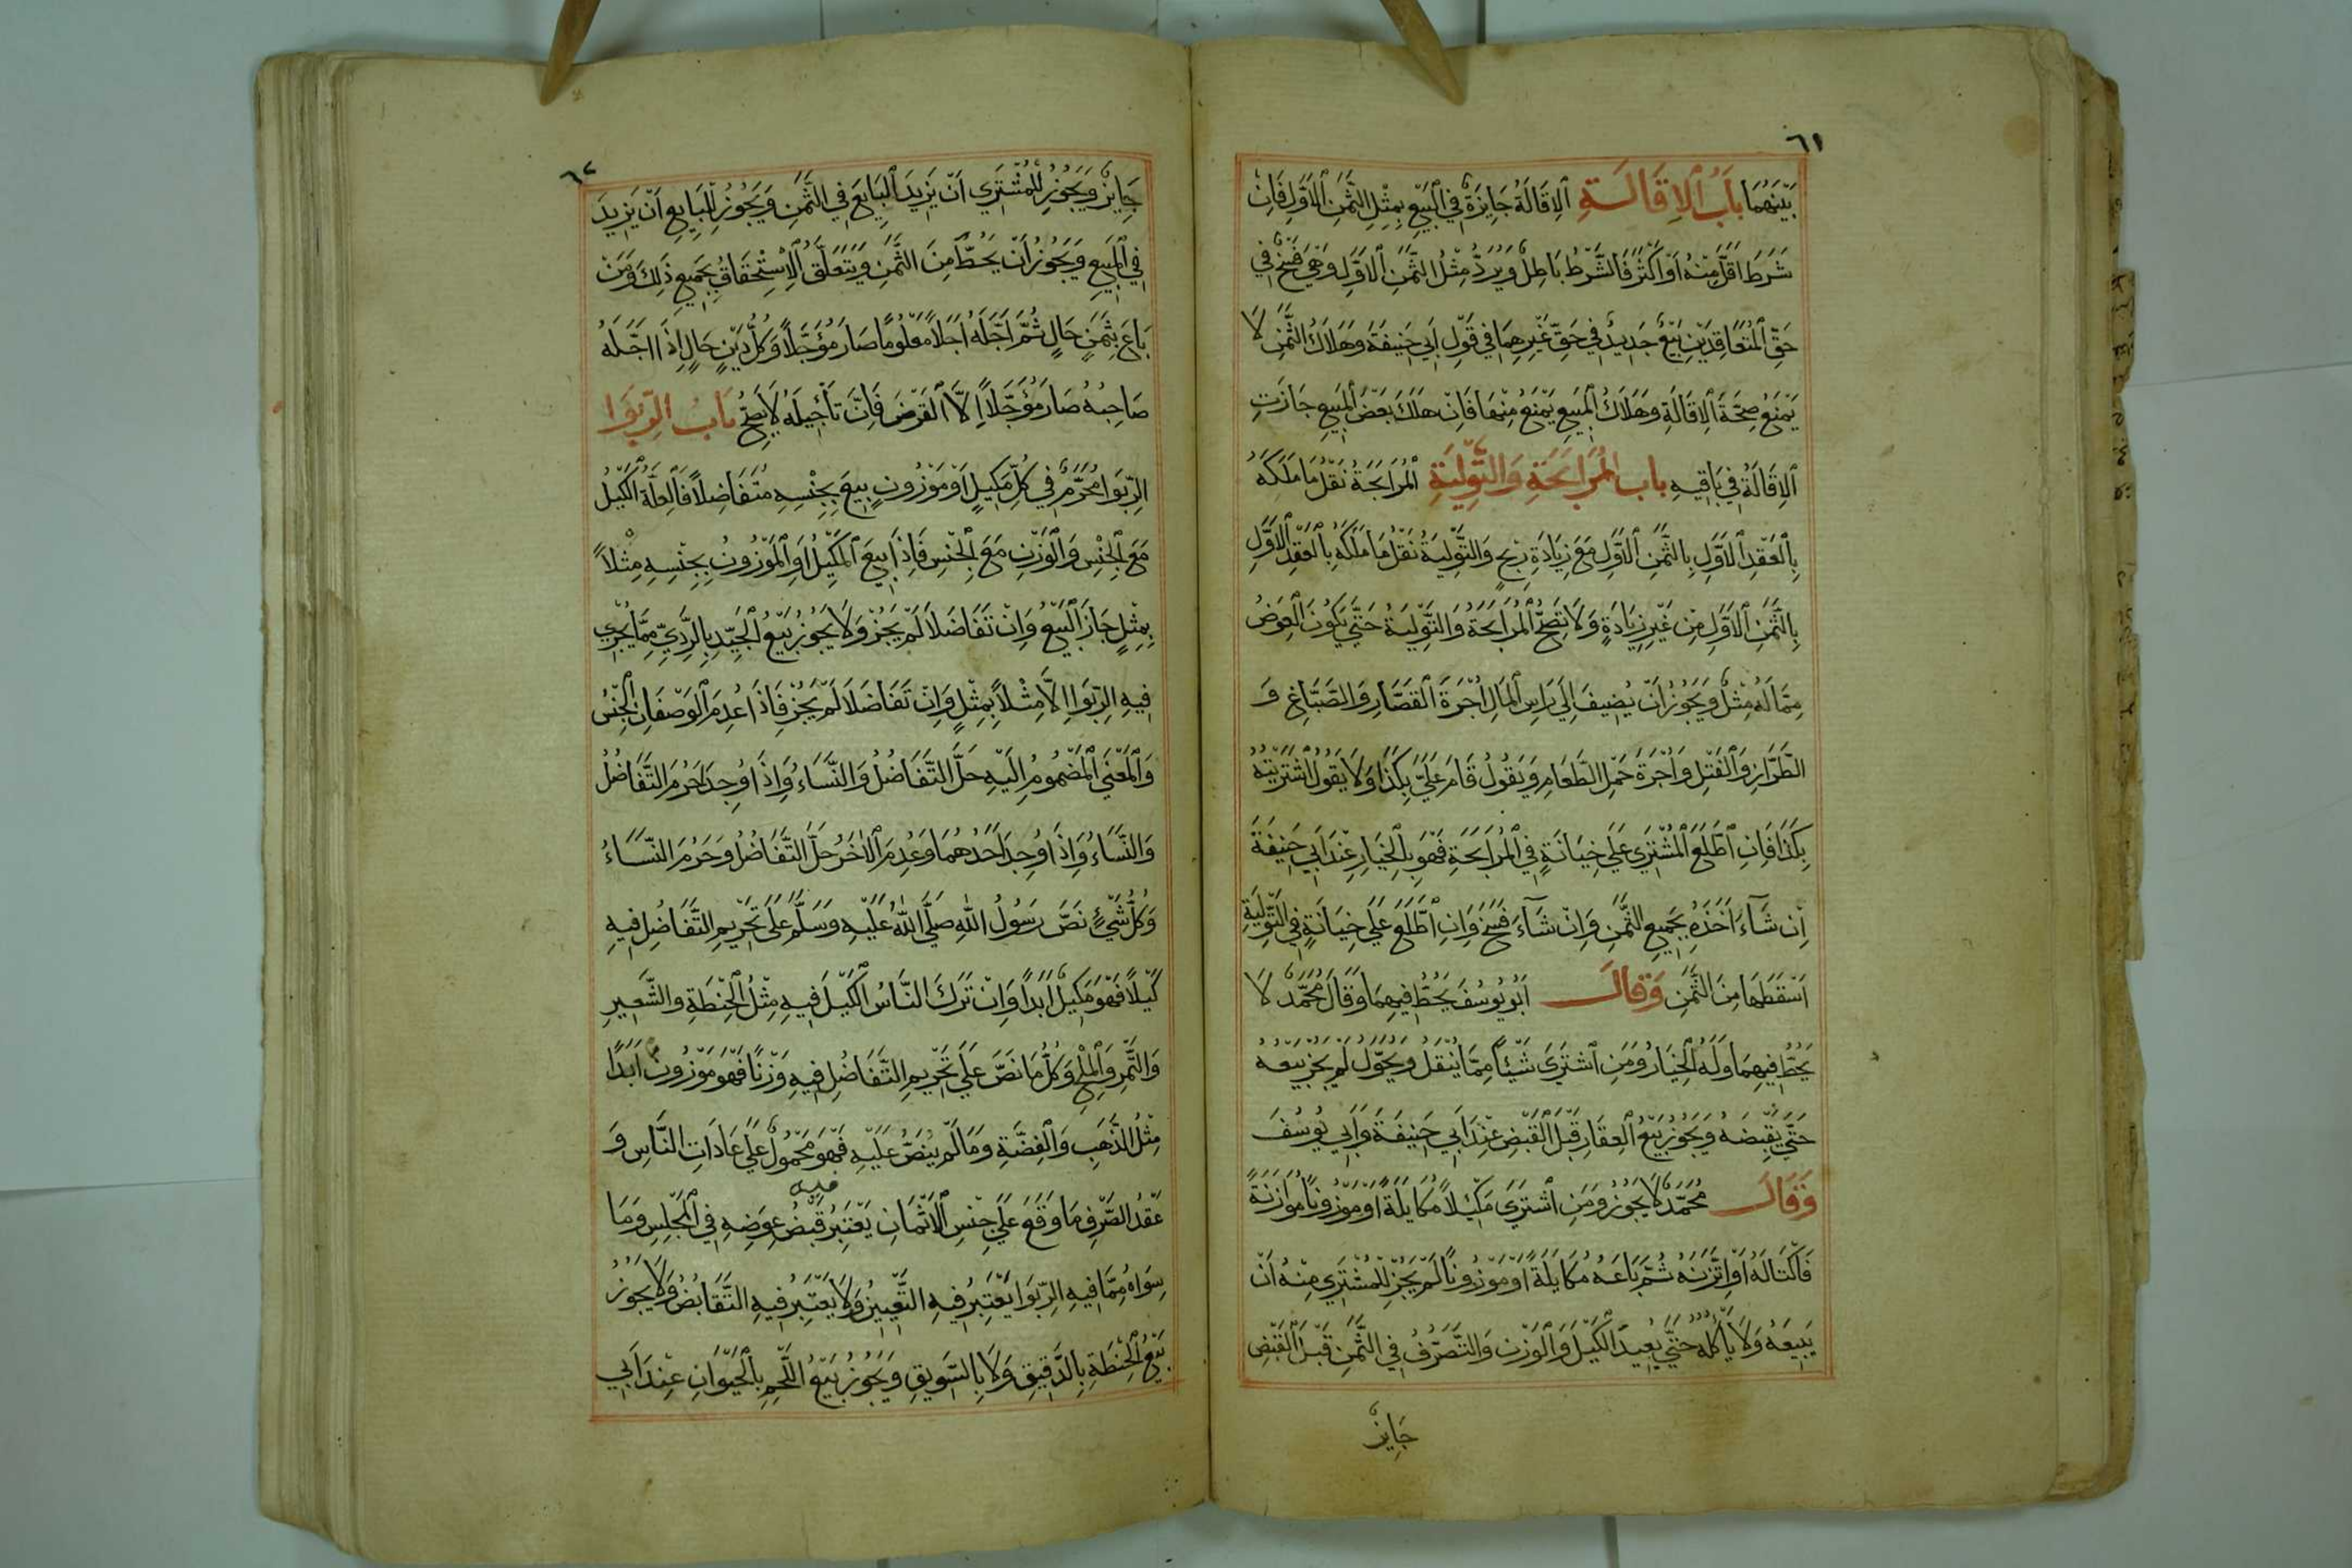 ٦١
بَيْنَهُمَا بَابُ الْاِقَالَةِ اَلْاِقَالَةُ جَايِزَةٌ فِي الْبَيْعِ بِمِثْلِ الثَّمَنِ الْاَوَّلِ فَاِنْ
شَرَطَ اَقَلَّ مِنْهُ اَوْ اَكْثَرَ فَالشَّرْطُ بَاطِلٌ وَيُرَدُّ مِثْلُ الثَّمَنِ الْاَوَّلِ وَهِيَ فَسْخٌ فِي
حَقِّ الْمُتَعَاقِدَيْنِ بَيْعٌ جَدِيدٌ فِي حَقِّ غَيْرِهِمَا فِي قَوْلِ اَبِي حَنِيفَةَ وَهَلَاكُ الثَّمَنِ لَا
يَمْنَعُ صِحَّةَ الْاِقَالَةِ وَهَلَاكُ الْمَبِيعِ يَمْنَعُ مِنْهَا فَاِنْ هَلَكَ بَعْضُ الْمَبِيعِ جَازَتِ
الْاِقَالَةُ فِي بَاقِيهِ باب الْمُرَابَحَةِ وَالتَّوْلِيَةِ اَلْمُرَابَحَةُ نَقْلُ مَا مَلَكَهُ
بِالْعَقْدِ الْاَوَّلِ بِالثَّمَنِ الْاَوَّلِ مَعَ زِيَادَةِ رِبْحٍ وَالتَّوْلِيَةُ نَقْلُ مَا مَلَكَهُ بِالْعَقْدِ الْاَوَّلِ
بِالثَّمَنِ الْاَوَّلِ مِنْ غَيْرِ زِيَادَةٍ وَلَا تَصِحُّ الْمُرَابَحَةُ وَالتَّوْلِيَةُ حَتَّى يَكُونَ الْعِوَضُ
مِمَّا لَهُ مِثْلٌ وَيَجُوزُ اَنْ يُضِيفَ اِلَى رَاسِ الْمَالِ اُجْرَةَ الْقَصَّارِ وَالصَّبَّاغِ وَ
الطَّرَّازِ وَالْفَتْلِ وَاُجْرَةَ حَمْلِ الطَّعَامِ وَيَقُولُ قَامَ عَلَيَّ بِكَذَا وَلَا يَقُولُ اشْتَرَيْتُهُ
بِكَذَا فَاِنِ اطَّلَعَ الْمُشْتَرِي عَلَى خِيَانَةٍ فِي الْمُرَابَحَةِ فَهُوَ بِالْخِيَارِ عِنْدَ اَبِي حَنِيفَةَ
اِنْ شَآءَ اَخَذَهُ بِجَمِيعِ الثَّمَنِ وَاِنْ شَآءَ فَسَخَ وَاِنِ اطَّلَعَ عَلَى خِيَانَةٍ فِي التَّوْلِيَةِ
اَسْقَطَهَا مِنَ الثَّمَنِ وَقَالَ اَبُو يُوسُفَ يَحُطُّ فِيهِمَا وَقَالَ مُحَمَّدٌ لَا
يَحُطُّ فِيهِمَا وَلَهُ الْخِيَارُ وَمَنِ اشْتَرَى شَيْئًا مِمَّا يُنْقَلُ وَيُحَوَّلُ لَمْ يَجُزْ بَيْعُهُ
حَتَّى يَقْبِضَهُ وَيَجُوزُ بَيْعُ الْعِقَارِ قَبْلَ الْقَبْضِ عِنْدَ اَبِي حَنِيفَةَ وَاَبِي يُوسُفَ
وَقَالَ مُحَمَّدٌ لَا يَجُوزُ وَمَنِ اشْتَرَى مَكِيْلًا مُكَايَلَةً اَوْ مَوْزُونًا مُوَازَنَةً
فَاكْتَالَهُ اَوْ اتَّزَنَهُ ثُمَّ بَاعَهُ مُكَايَلَةً اَوْ مَوْزُونًا لَمْ يَجُزْ لِلْمُشْتَرِي مِنْهُ اَنْ
يَبِيعَهُ وَلَا يَأْكُلَهُ حَتَّى يُعِيدَ الْكَيْلَ وَالْوَزْنَ وَالتَّصَرُّفُ فِي الثَّمَنِ قَبْلَ الْقَبْضِ
جَايِزٌ
٦٢
جَايِزٌ وَيَجُوزُ لِلْمُشْتَرِي اَنْ يَزِيدَ الْبَايِعَ فِي الثَّمَنِ وَيَجُوزُ لِلْبَايِعِ اَنْ يَزِيدَ
فِي الْمَبِيعِ وَيَجُوزُ اَنْ يَحُطَّ مِنَ الثَّمَنِ وَيَتَعَلَّقُ الْاِسْتِحْقَاقُ بِجَمِيعِ ذٰلِكَ وَمَنْ
بَاعَ بِثَمَنٍ حَالٍ ثُمَّ اَجَّلَهُ اَجَلًا مَعْلُومًا صَارَ مُؤَجَّلًا وَكُلُّ دَيْنٍ حَالٍ اِذَا اَجَّلَهُ
صَاحِبُهُ صَارَ مُؤَجَّلًا اِلَّا الْقَرْضَ فَاِنَّ تَأْجِيلَهُ لَا يَصِحُّ بَابُ الرِّبٰوا
الرِّبٰوا مُحَرَّمٌ فِي كُلِّ مَكِيلٍ اَوْ مَوْزُونٍ بِيعَ بِجِنْسِهِ مُتَفَاضِلًا فَالْعِلَّةُ الْكَيْلُ
مَعَ الْجِنْسِ وَالْوَزْنِ مَعَ الْجِنْسِ فَاِذَا بِيعَ الْمَكِيلُ اَوِ الْمَوْزُونُ بِجِنْسِهِ مِثْلًا
بِمِثْلٍ جَازَ الْبَيْعُ وَاِنْ تَفَاضَلَا لَمْ يَجُزْ وَلَا يَجُوزُ بَيْعُ الْجَيِّدِ بِالرَّدِيِّ مِمَّا يُجْرِي
فِيهِ الرِّبٰوا اِلَّا مِثْلًا بِمِثْلٍ وَاِنْ تَفَاضَلَا لَمْ يَجُزْ فَاِذَا عُدِمَ الْوَصْفَانِ الْجِنْسُ
وَالْمَعْنَى الْمَضْمُومُ اِلَيْهِ حَلَّ التَّفَاضُلُ وَالنَّسَاءُ وَاِذَا وُجِدَا حَرُمَ التَّفَاضُلُ
وَالنَّسَاءُ وَاِذَا وُجِدَ اَحَدُهُمَا وَعُدِمَ الْاٰخَرُ حَلَّ التَّفَاضُلُ وَحَرُمَ النَّسَاءُ
وَكُلُّ شَيْءٍ نَصَّ رَسُولُ اللهِ صَلَّى اللهُ عَلَيْهِ وَسَلَّمَ عَلَى تَحْرِيمِ التَّفَاضُلِ فِيهِ
كَيْلًا فَهُوَ مَكِيلٌ اَبَدًا وَاِنْ تَرَكَ النَّاسُ الْكَيْلَ فِيهِ مِثْلُ الْحِنْطَةِ وَالشَّعِيرِ
وَالتَّمْرِ وَالْمِلْحِ وَكُلُّ مَا نَصَّ عَلَى تَحْرِيمِ التَّفَاضُلِ فِيهِ وَزْنًا فَهُوَ مَوْزُونٌ اَبَدًا
مِثْلُ الذَّهَبِ وَالْفِضَّةِ وَمَا لَمْ يُنَصَّ عَلَيْهِ فَهُوَ مَحْمُولٌ عَلَى عَادَاتِ النَّاسِ وَ
عَقْدُ الصَّرْفِ مَا وَقَعَ عَلَى جِنْسِ الْاَثْمَانِ يُعْتَبَرُ فيه قَبْضُ عِوَضِهِ فِي الْمَجْلِسِ وَمَا
سِوَاهُ مِمَّا فِيهِ الرِّبٰوا يُعْتَبَرُ فِيهِ التَّعْيِينُ وَلَا يُعْتَبَرُ فِيهِ التَّقَابُضُ وَلَا يَجُوزُ
بَيْعُ الْحِنْطَةِ بِالدَّقِيقِ وَلَا بِالسَّوِيقِ وَيَجُوزُ بَيْعُ اللَّحْمِ بِالْحَيَوَانِ عِنْدَ اَبِي